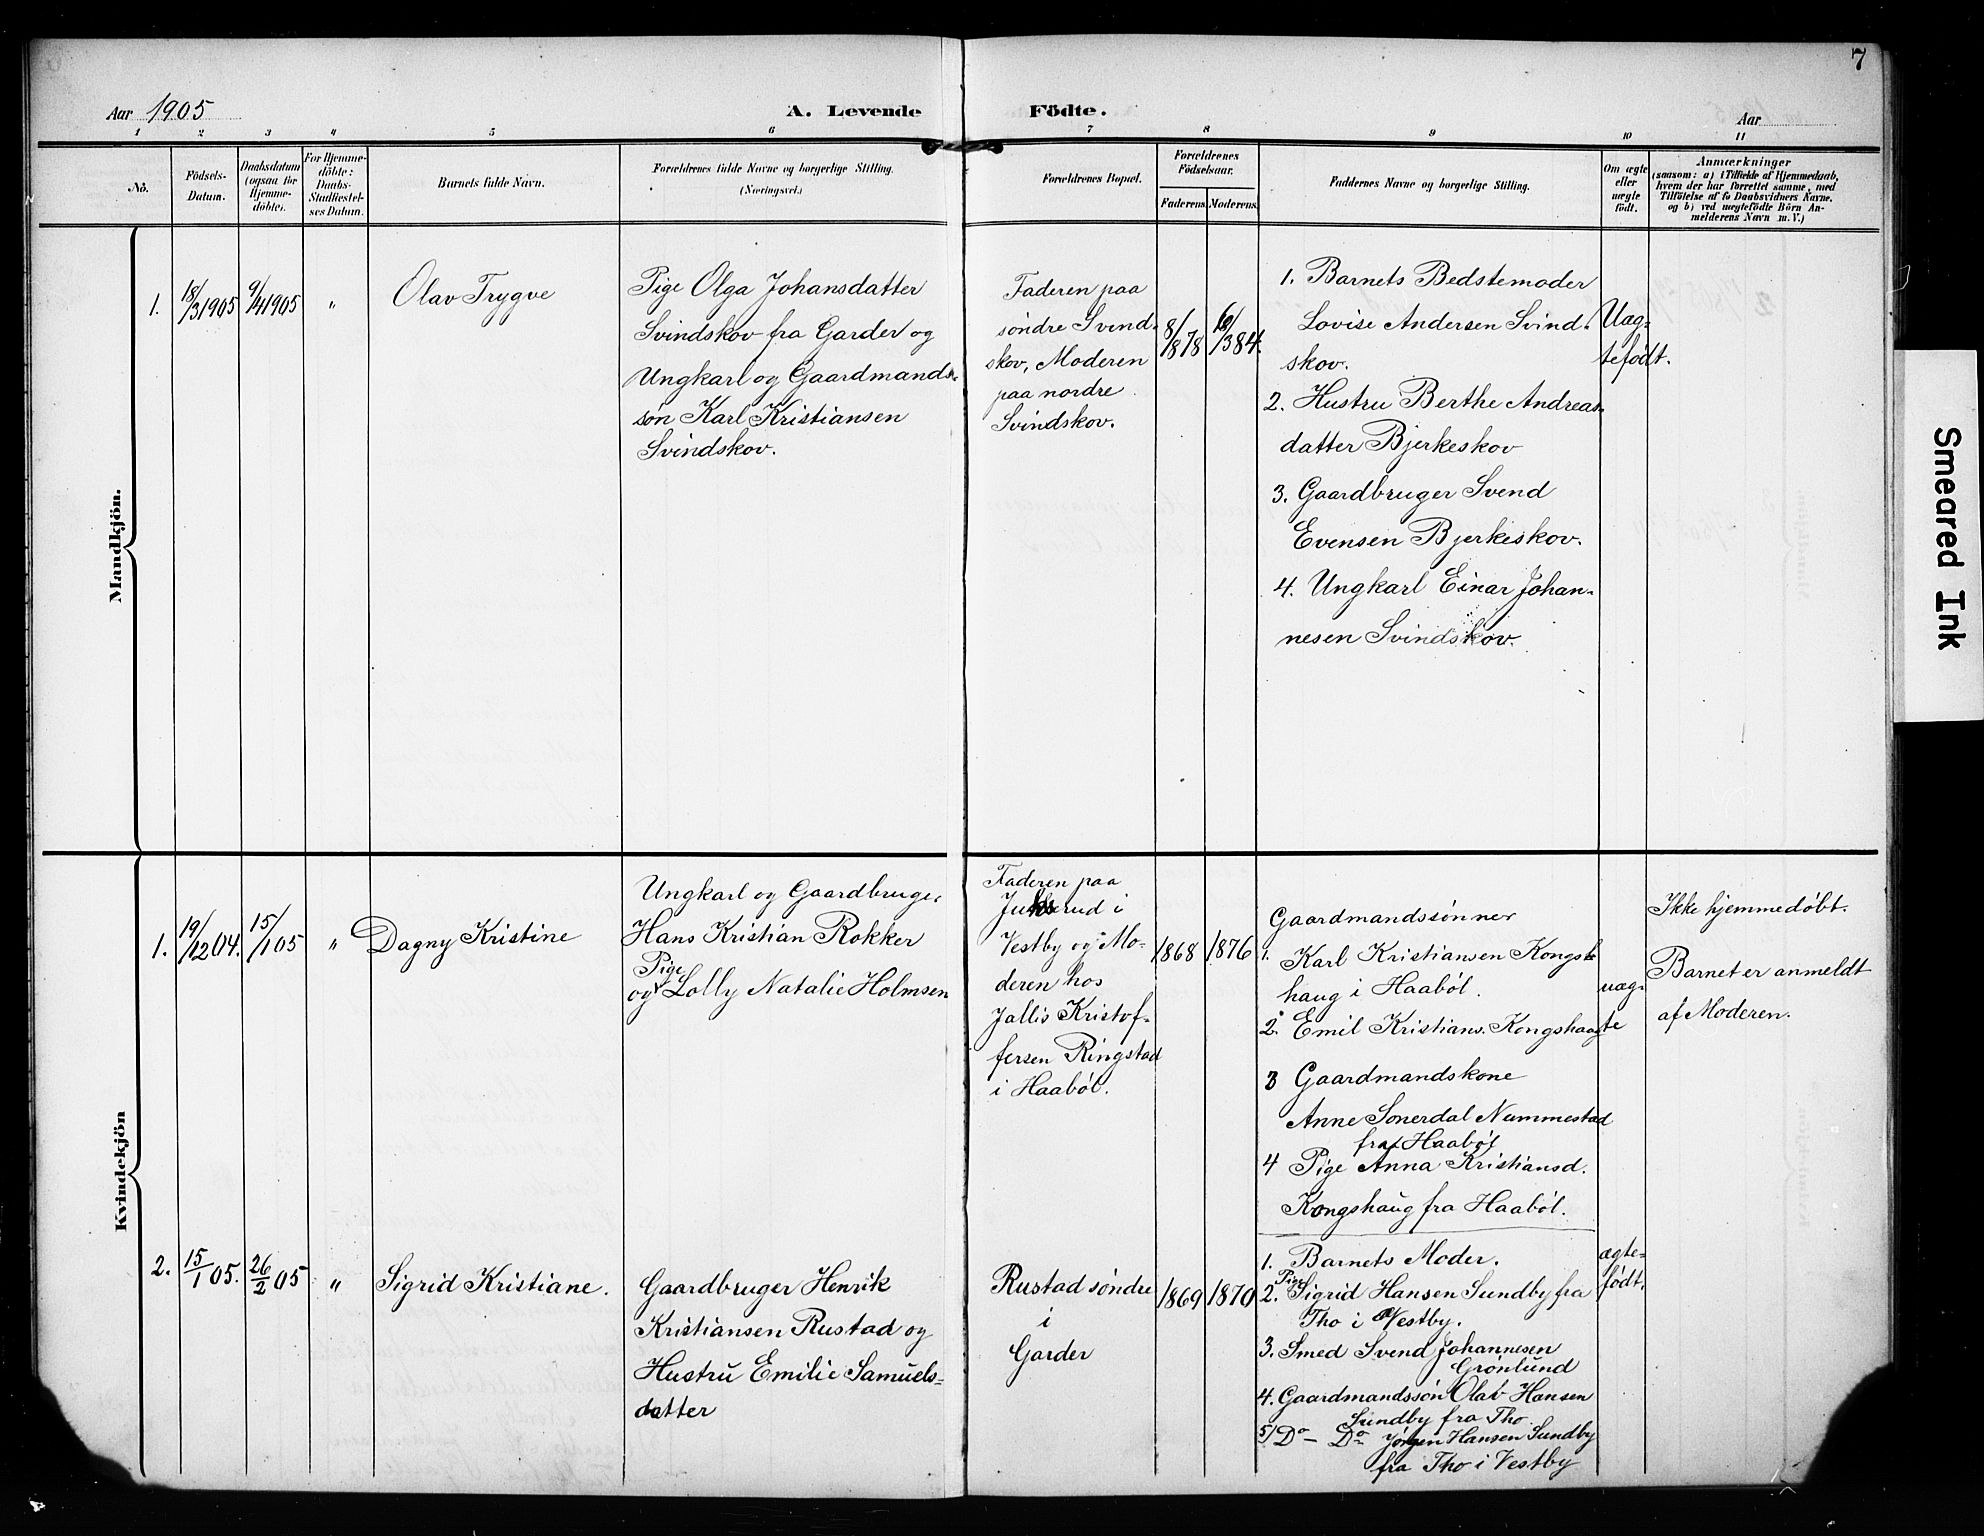 7
Aar 1905
A. Levende Födte.
Aar
1 2 3 4 5 6 7 8 9 10 11
No.
Födsels-
Datum.
Daabsdatum
(ogsaa for
Hjemme-
döbte).
For Hjemme-
döbte:
Daabs-
Stadfæstel-
ses Datum.
Barnets fulde Navn.
Forældrenes fulde Navne og borgerlige Stilling.
(Næringsvei.)
Forældrenes Bopæl.
Forældrenes
Födselsaar.
Faderens. Moderens.
Faddernes Navne og borgerlige Stilling.
Om ægte
eller
uægte
født.
Anmærkninger
(saasom: a) i Tilfælde af Hjemmedaab,
hvem der har forrettet samme, med
Tilföielse af to Daabsvidners Navne,
og b) ved uægtefödte Börn An-
melderens Navn m. V.)
Mandkjön.
1.
18/3 1905
9/4 1905
"
Olav Trygve
Pige Olga Johansdatter
Svindskov fra Garder og
Ungkarl og Gaardmands-
søn Karl Kristiansen
Svindskov.
Faderen paa
søndre Svind-
skov, Moderen
paa nordre
Svindskov.
8/8 78
/3 84.
1. Barnets Bedstemoder
Lovise Andersen Svind-
skov.
2. Hustru Berthe Andreas-
datter Bjerkeskov
3. Gaardbruger Svend
Evensen Bjerkeskov.
4. Ungkarl Einar Johan-
nesen Svindskov.
Uæg-
tefødt.
Kvindekjön
1.
19/12 04.
15/1 05
"
Dagny Kristine
Ungkarl og Gaardbruger
Hans Kristian Rokker
Pige
og Lolly Natalie Holmsen
Faderen paa
Jukserud i
Vestby og Mo-
deren hos
Jallis Kristof-
fersen Ringstad
i Haabøl.
1868
1876
Gaardmandssønner
1. Karl Kristiansen Kongs-
haug i Haabøl.
2. Emil Kristians. Kongshaug
3 Gaardmandskone
Anne Sonerdal Nummestad
fra Haabøl
4 Pige Anna Kristiansd.
Kongshaug fra Haabøl.
uæg-
te
Ikke hjemmedøbt.
Barnet er anmeldt
af Moderen.
2.
15/1 05.
26/2 05
"
Sigrid Kristiane.
Gaardbruger Henrik
Kristiansen Rustad og
Hustru Emilie Samuels-
datter
Rustad søndre
i
Garder
1869
1870
1. Barnets Moder.
Pige
2. Sigrid Hansen Sundby fra
Tho i Vestby.
3. Smed Svend Johannesen
Grønlund
4. Gaardmandssøn Olaf Hansen
Sundby fra Tho
5/ Do — Do Jørgen Hansen Sundby
fra Tho i Vestby
ægte-
født.
Smeared Ink